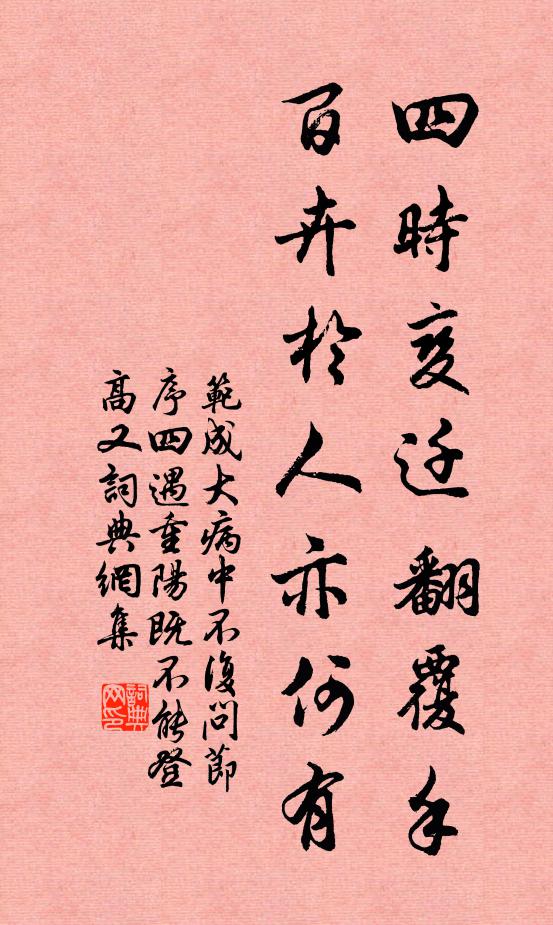 四時变迁翻覆手
百卉於人亦何有
範成大病中不復問節
序四遇重陽既不能登
高又詞典網集
詞典網印